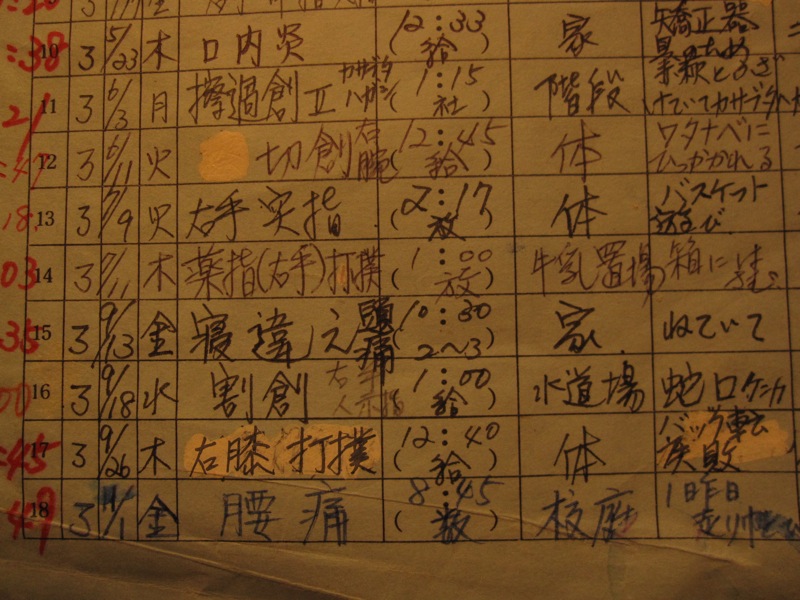 :38 10 3 5/23 木 口内炎 12:33 (給) 家 矯正器
11 3 6/3 月 擦過創 II カサブタ ハガシ 1:15 (社) 階段
21
12 3 6/11 火 切創 右腕 12:45 (給) 体 ワタナベに ひっかかれる
18 13 3 7/9 火 右手 実指 2:17 (放) 体 バスケット 遊び
03 14 3 7/11 木 薬指(右手)打撲 1:00 (放) 牛乳置場 箱に
35 15 3 9/13 金 寝違え 頭痛 10:30 (2〜3) 家 ねていて
00 16 3 9/18 水 割創 右手 人示指 1:00 (給) 水道場 蛇口ケンカ
:45 17 3 9/26 木 右膝 打撲 12:40 (給) 体 バック転 失敗
49 18 3 11/1 金 腰痛 8:45 (数) 校庭 1日昨日